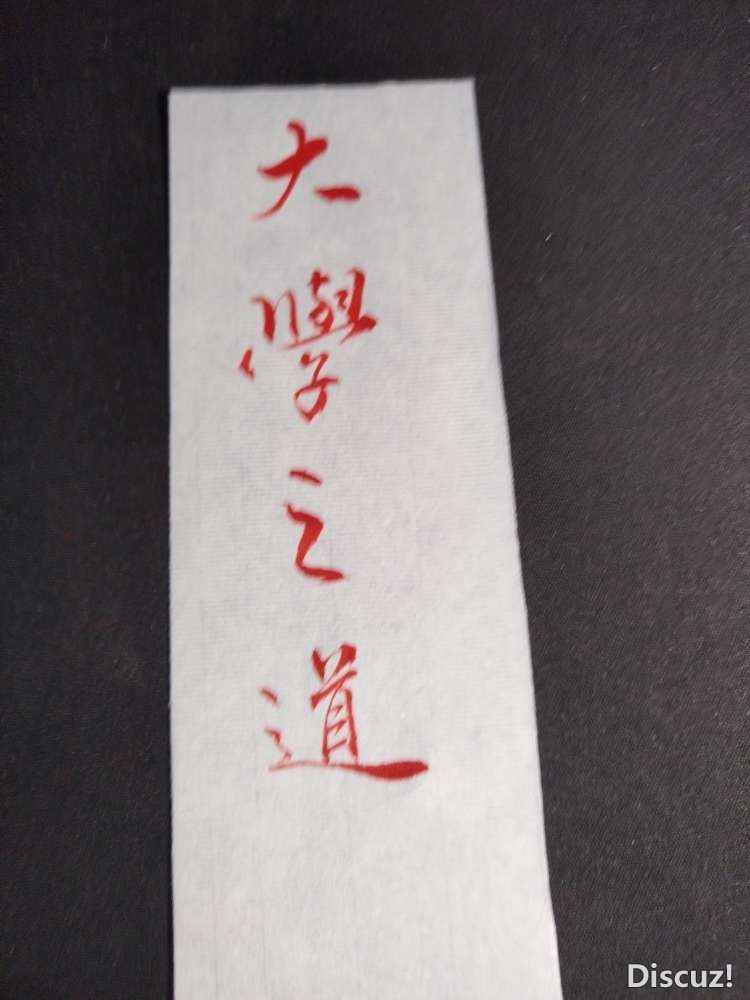 大學之道
Discuz!